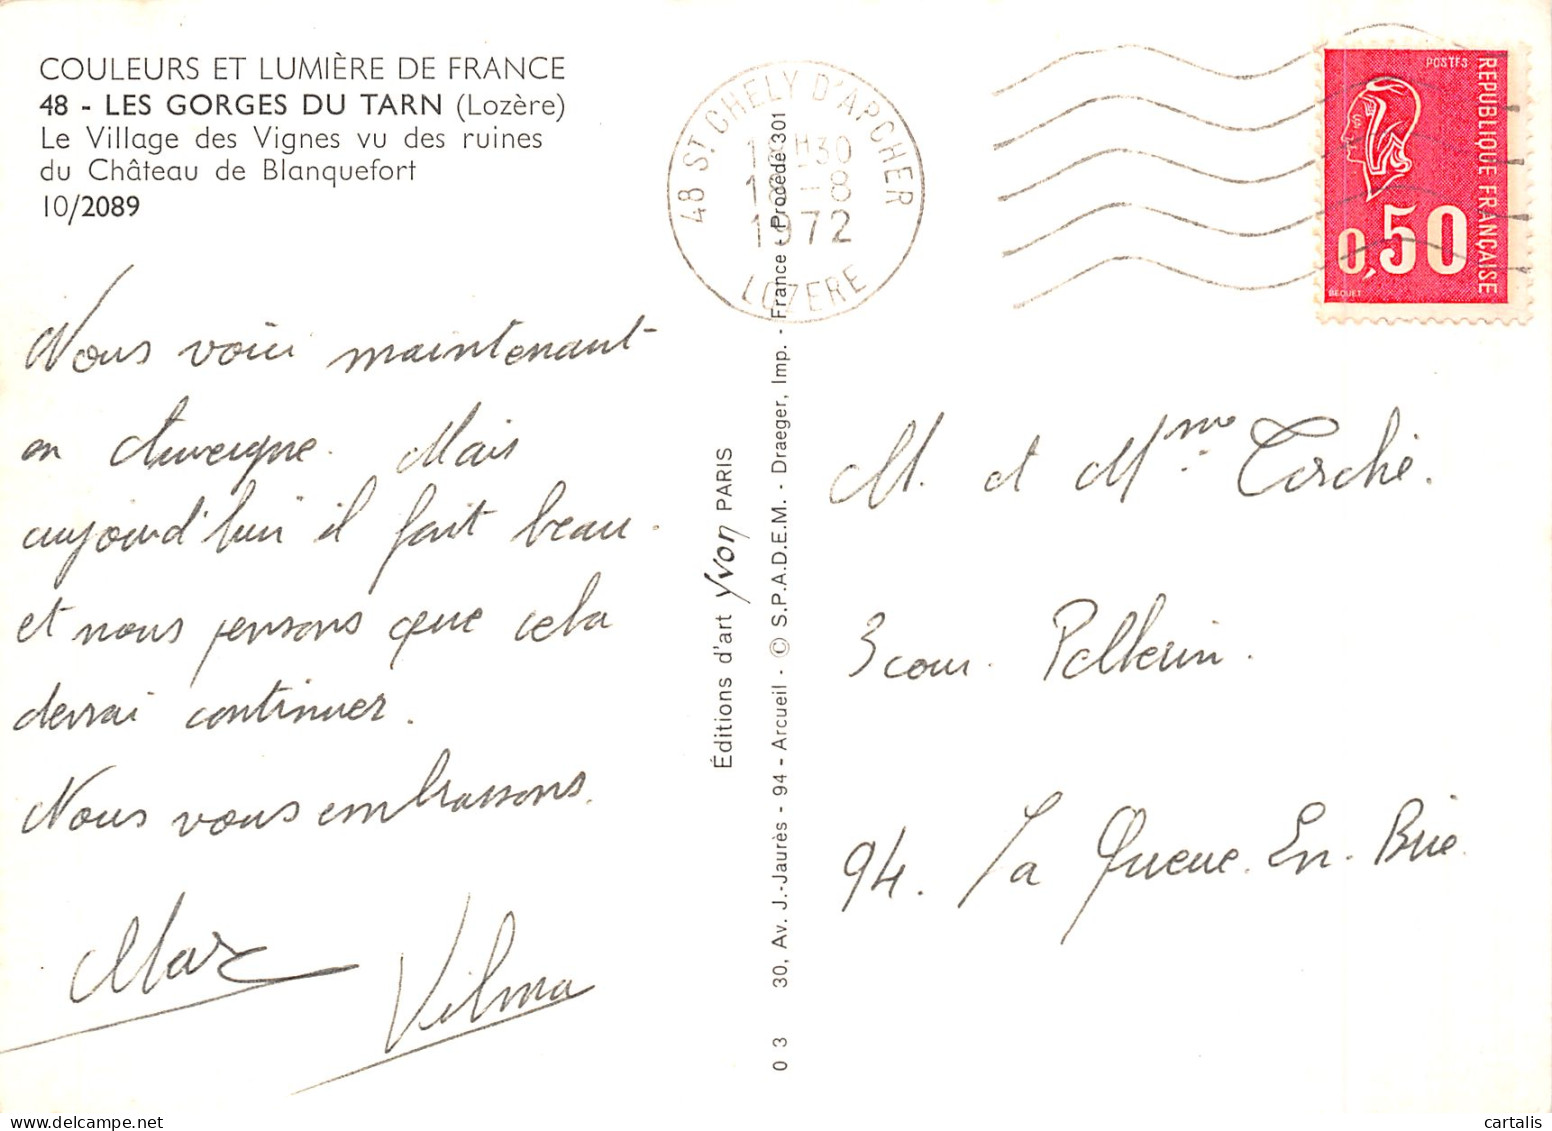 COULEURS ET LUMIÈRE DE FRANCE
48 - LES GORGES DU TARN (Lozère)
Le Village des Vignes vu des ruines
du Château de Blanquefort
10/2089
Nous voici maintenant
en Auvergne. Mais
aujourd'hui il fait beau.
et nous pensons que cela
devrai continuer.
Nous vous embrassons.
Marc
Vilma
Éditions d'art yvon PARIS
0 3 30, Av. J.-Jaurès - 94 - Arcueil - © S.P.A.D.E.M. - Draeger, Imp. - France - Procédé 301
48 ST CHELY D'APCHER
H30
-8
1972
LOZERE
POSTES
REPUBLIQUE FRANÇAISE
0,50
BEQUET
M. et Mme
3 cour. Pellerin.
94. La Queue. En. Brie.
cartalis